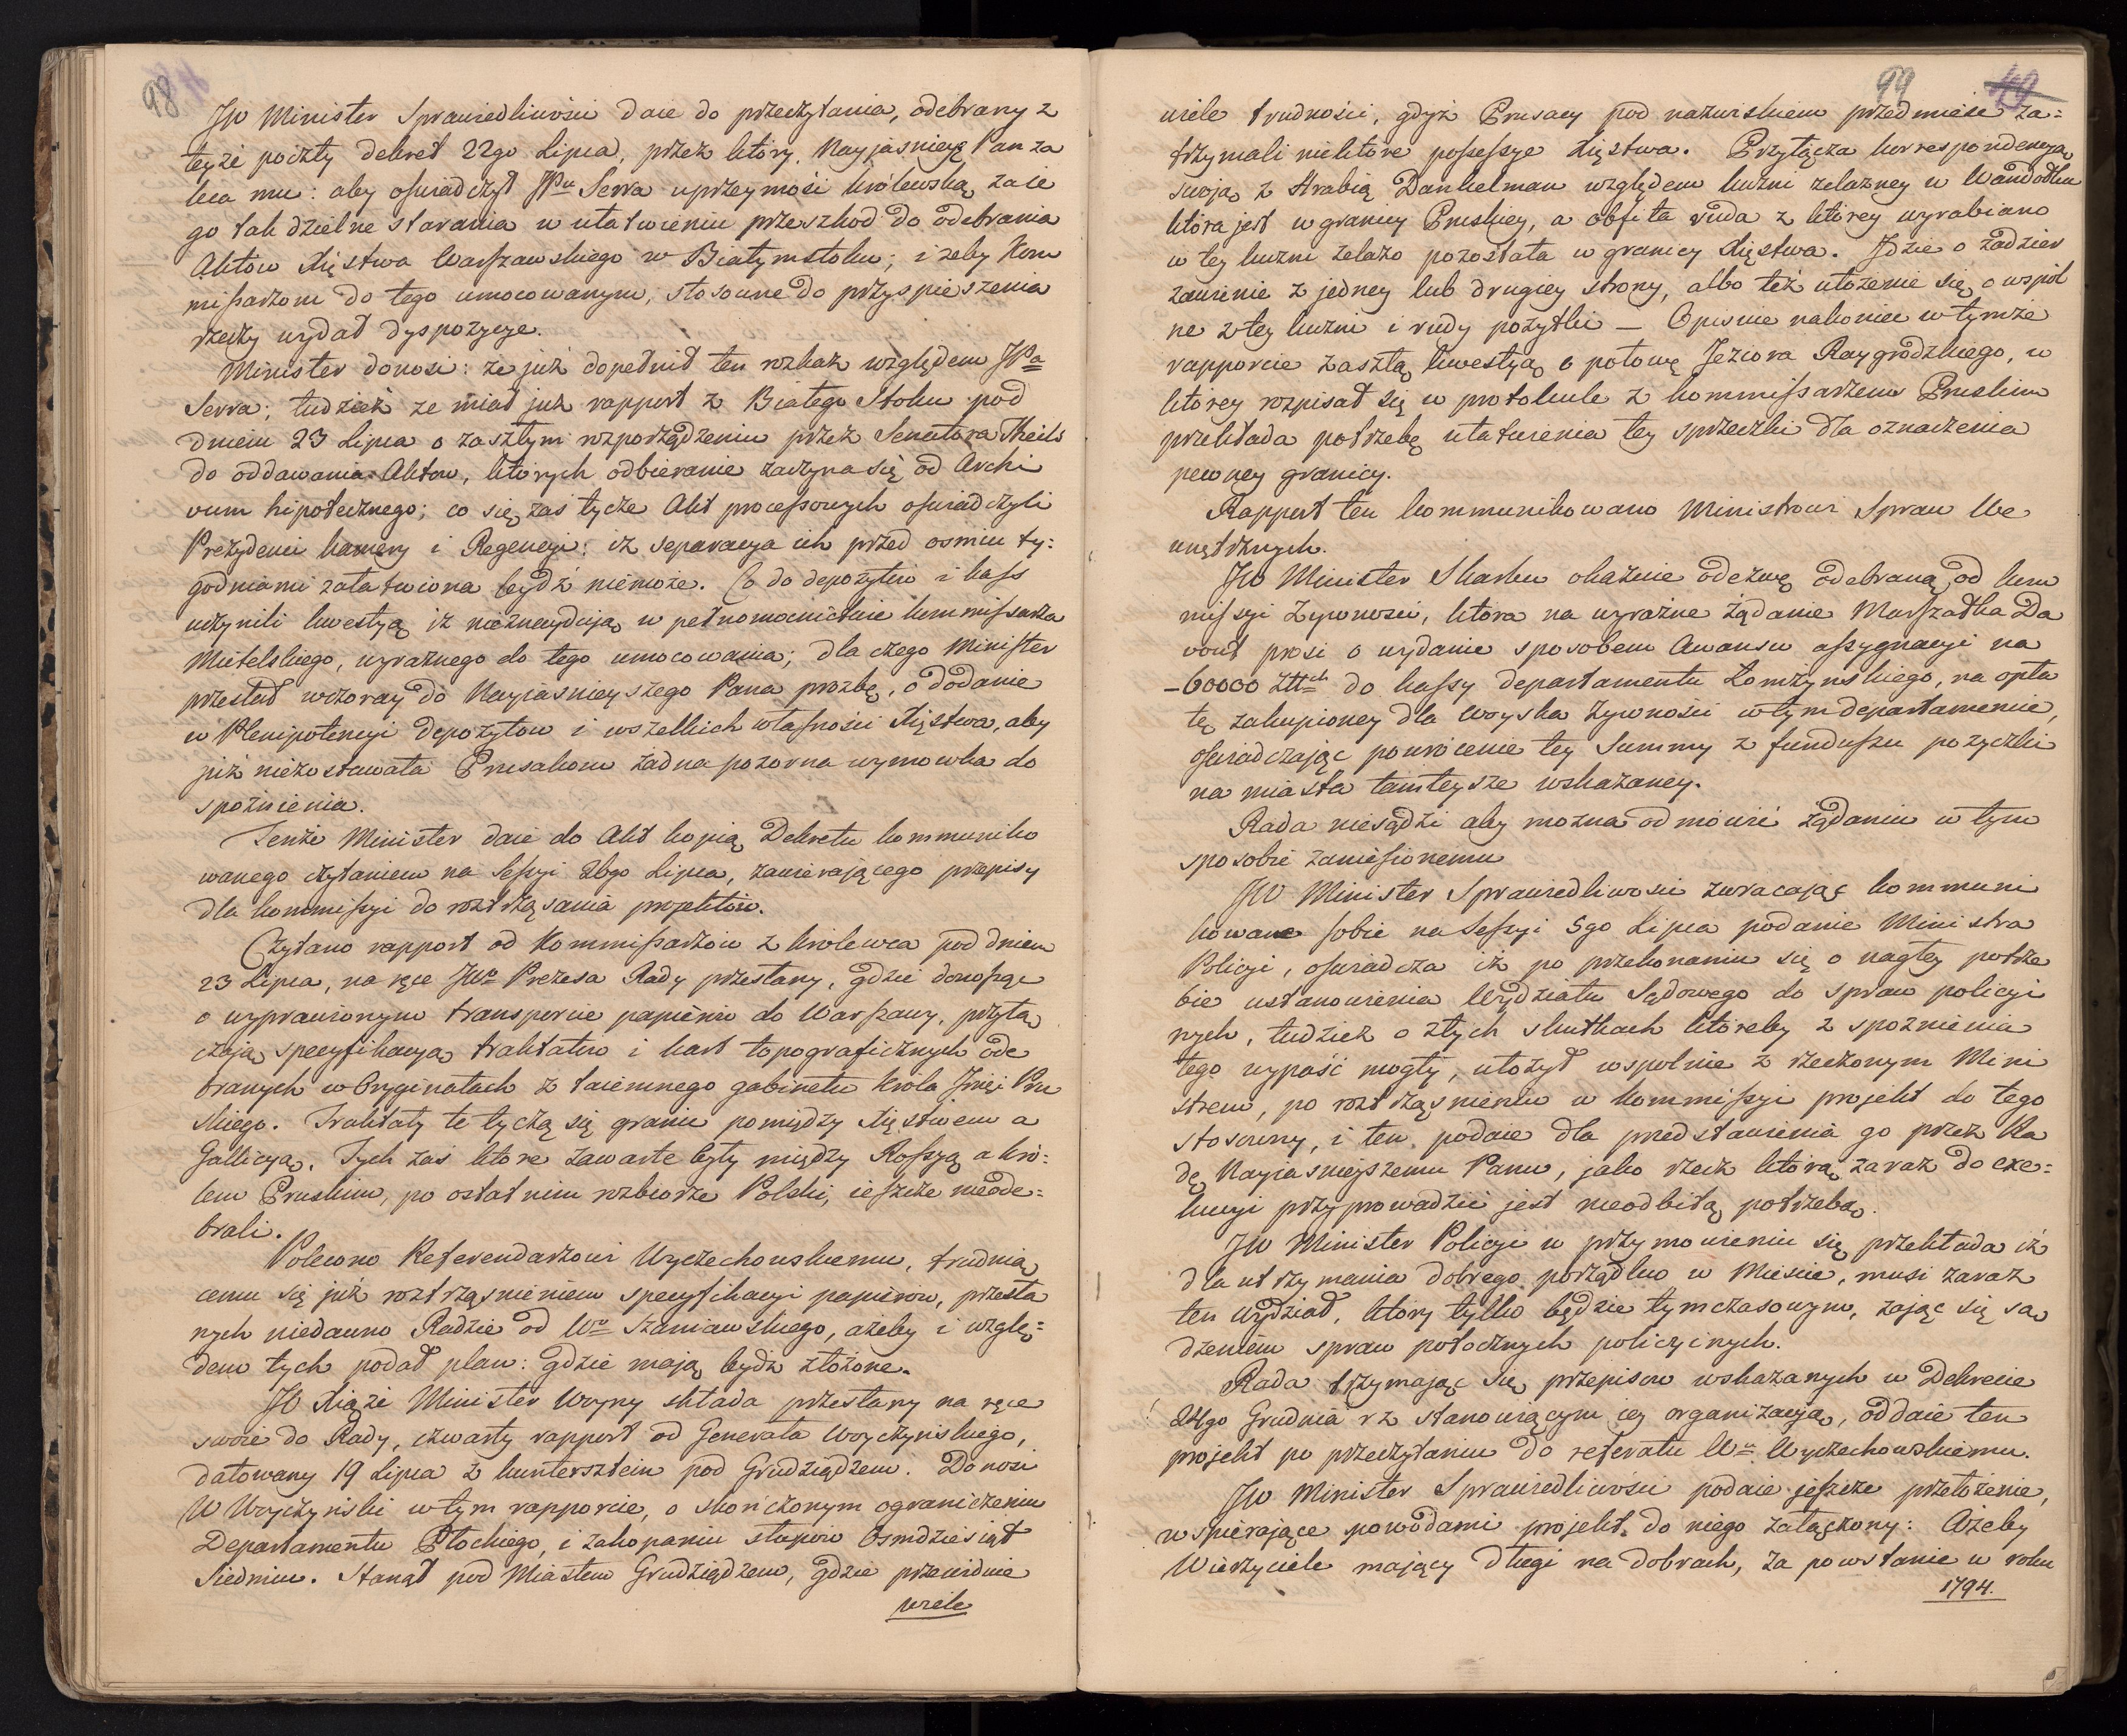 98
JW Minister Sprawiedliwości daie do przeczytania, odebrany z
teyże poczty dekret 22go Lipca, przez który Nayjaśnieyszy Pan za
leca mu: aby oświadczył JPu Serra uprzeymość królewską za ie
go tak dzielne starania w ułatwieniu przeszkod do odebrania
Aktow Xięstwa Warszawskiego w Białymstoku; i żeby Kom
missarzom do tego umocowanym, stosowne do przyspieszenia
rzeczy wydał dyspozycye.
Minister donosi: że już dopełnił ten rozkaz względem JPa
Serra; tudzież że miał już rapport z Białego Stoku pod
dniem 23 Lipca o zaszłym rozporządzeniu przez Senatora Theils
do oddawania Aktow, których odbieranie zaczyna się od Archi
vum hipotecznego; co się zaś tycze Akt processowych oświadczyli
Prezydenci kamery i Regencyi; iż separacya ich przed osmiu ty=
godniami załatwiona bydź niemoże. Co do depozytów i kass
uczynili kwestyą iż nieznayduią w pełnomocnictwie kommissarza
Mietelskiego, wyraźnego do tego umocowania; dla czego Minister
przesłał wczoray do Nayiaśnieyszego Pana prozbę, o dodanie
w Plenipotencyi depozytow i wszelkich własności Xięstwa, aby
już niezostawała Prusakom żadna pozorna wymowka do
spoźnienia.
Tenże Minister daie do Akt kopią Dekretu kommuniko
wanego czytaniem na Sessyi 26go Lipca, zawierającego przepisy
dla kommissyi do roztrząsania projektów.
Czytano rapport od Kommissarzow z Krolewca pod dniem
23 Lipca, na ręce JWo Prezesa Rady przesłany, gdzie donosząc
o wyprawionym transporcie papierów do Warszawy, przyłą
czają specyfikacyą traktatow i kart topograficznych ode
branych w Oryginałach z taiemnego gabinetu Krola Jmci Pru
skiego. Traktaty te tyczą się granic pomiędzy Xięstwem a
Gallicyą. Tych zaś które zawarte były między Rossyą a kró=
lem Pruskim, po ostatnim rozbiorze Polski, ieszcze nieode=
brali.
Polecono Referendarzowi Wyczechowskiemu, trudnią
cemu się już roztrząśnieniem specyfikacyi papierow, przesła
nych niedawno Radzie od Wo Szaniawskiego, ażeby i wzglę=
dem tych podał plan: gdzie mają bydź złożone.
JO Xiąże Minister Woyny składa przesłany na ręce
swoie do Rady, czwarty rapport od Generała Woyczyńskiego,
datowany 19 Lipca z kuntersztein pod Grudziądzem. Donosi
W Woyczyński w tym rapporcie, o skończonym ograniczeniu
Departamentu Płockiego, i zakopaniu słupow Osmdziesiąt
Siedmiu. Stanął pod Miastem Grudziądzem, gdzie przewiduie
wiele
99
wiele trudności, gdyż Prusacy pod nazwiskiem przedmieść za=
trzymali niektóre possessye Xięstwa. Przyłącza korrespondencyą
swoją z Hrabią Dankelman względem kuzni żelazney w Wandotku
która jest w granicy Pruskiey, a obfita ruda z którey wyrabiano
w tey kuzni żelazo pozostała w granicy Xięstwa. Jdzie o zadzier
żawienie z jedney lub drugiey strony, albo też ułożenie się o wspól
ne z tey kuzni i rudy pożytki — Opisuie nakoniec w tymże
rapporcie zaszłą kwestyą o połowę Jeziora Raygrodzkiego, w
którey rozpisał się w protokule z kommissarzem Pruskim
przekłada potrzebę ułatwienia tey sprzeczki dla oznaczenia
pewney granicy.
Rapport ten kommunikowano Ministrowi Spraw We
wnętrznych.
JW Minister Skarbu okazuie odezwę odebraną od kom
missyi żywności, która na wyraźne żądanie Marszałka Da
vout prosi o wydanie sposobem Awansu assygnacyi na
—60000 Złł do kassy departamentu Łomżyńskiego, na opła
tę zakupioney dla Woyska żywności w tym departamencie,
oświadczając powrócenie tey Summy z funduszu pożyczki
na miasta tamteysze wskazaney.
Rada niesądzi aby można odmówić żądaniu w tym
sposobie zaniesionemu
JW Minister Sprawiedliwości zwracając kommuni
kowane sobie na Sessyi 5go Lipca podanie Ministra
Policyi, oświadcza iż po przekonaniu się o nagłey potrze
bie ustanowienia Wydziału Sądowego do spraw policyi
nych, tudzież o złych skutkach któreby z spoźnienia
tego wypaść mogły, ułożył wspolnie z rzeczonym Mini
strem, po roztrząśnieniu w kommissyi projekt do tego
stosowny, i ten podaie dla przedstawienia go przez Ra
dę Nayiaśniejszemu Panu, jako rzecz którą zaraz do exe=
kucyi przyprowadzić jest nieodbitą potrzebą.
JW Minister Policyi w przymowieniu się przekłada iż
dla utrzymania dobrego porządku w Mieście, musi zaraz
ten Wydział, który tylko będzie tymczasowym, zając się są
dzeniem spraw potocznych policyinych.
Rada trzymając się przepisow wskazanych w Dekrecie
24go Grudnia rz stanowiącym iey organizacyą, oddaie ten
projekt po przeczytaniu do referatu Wu Wyczechowskiemu.
JW Minister Sprawiedliwości podaie jeszcze przełożenie,
wspierające powodami projekt do niego załączony: Ażeby
Wierzyciele mający długi na dobrach, za powstanie w roku
1794.